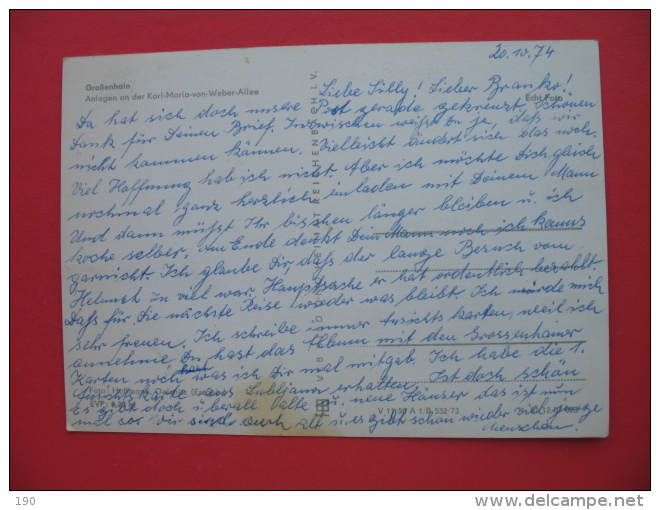 20.10.74
Großenhain
Anlagen an der Karl-Maria-von-Weber-Allee
Echt Foto
Liebe Silly! Lieber Branko!
Da hat sich doch unsere Post gerade gekreuzt. Schönen
Dank für Deinen Brief. Inzwischen weißt Du ja, daß wir
nicht kommen können. Vielleicht ändert sich das noch.
Viel Hoffnung hab ich nicht. Aber ich möchte Dich gleich
nochmal ganz herzlich einladen mit Deinem Mann
Und dann müßt Ihr bischen länger bleiben u. ich
koche selber. Am Ende denkt Dein Mann noch ich kanns
garnicht. Ich glaube Dir, daß der lange Besuch vom
Helmut zu viel war. Hauptsache er hat ordentlich bezahlt
Daß für Die nächste Reise wieder was bleibt. Ich würde mich
sehr freuen. Ich schreibe immer Ansichtskarten, weil ich
annehme, Du hast das Album mit den Grossenhainer
Karten noch was ich Dir mal mitgab. Ich habe die 1.
Ansichtskarte aus Lubljana erhalten. Ist doch schön
Es gibt doch überall alte u. neue Häuser das ist nun
mal so wir sind auch alt u. es gibt schon wieder viel junge
Menschen.
VEB BILD UND HEIMAT REICHENBACH I. V.
V 11 50 A 1/B 532/73
190